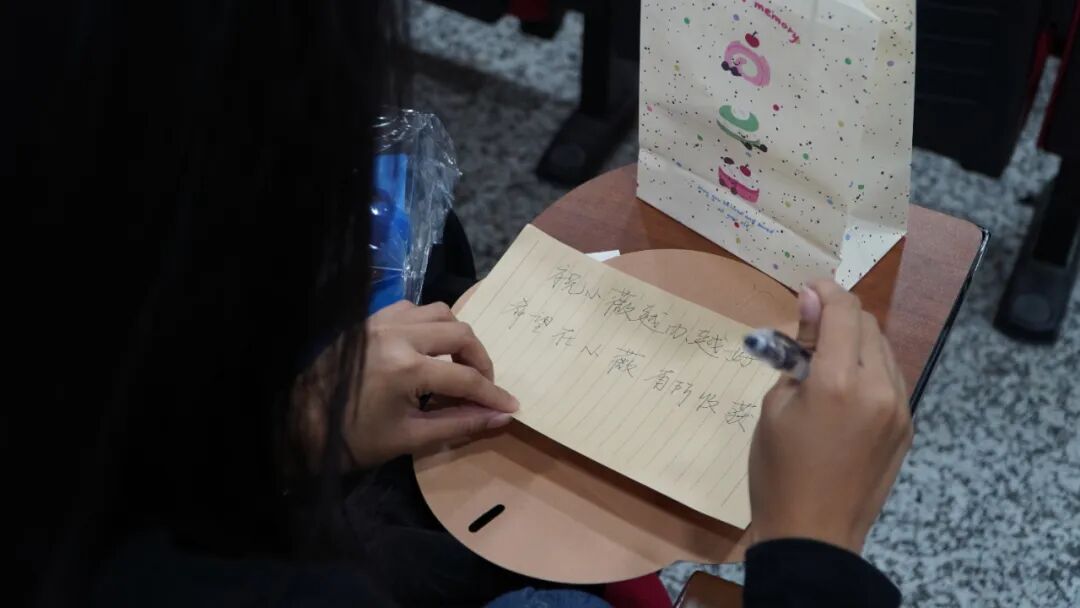 memory
祝小薇越办越好
希望在小薇有所收获